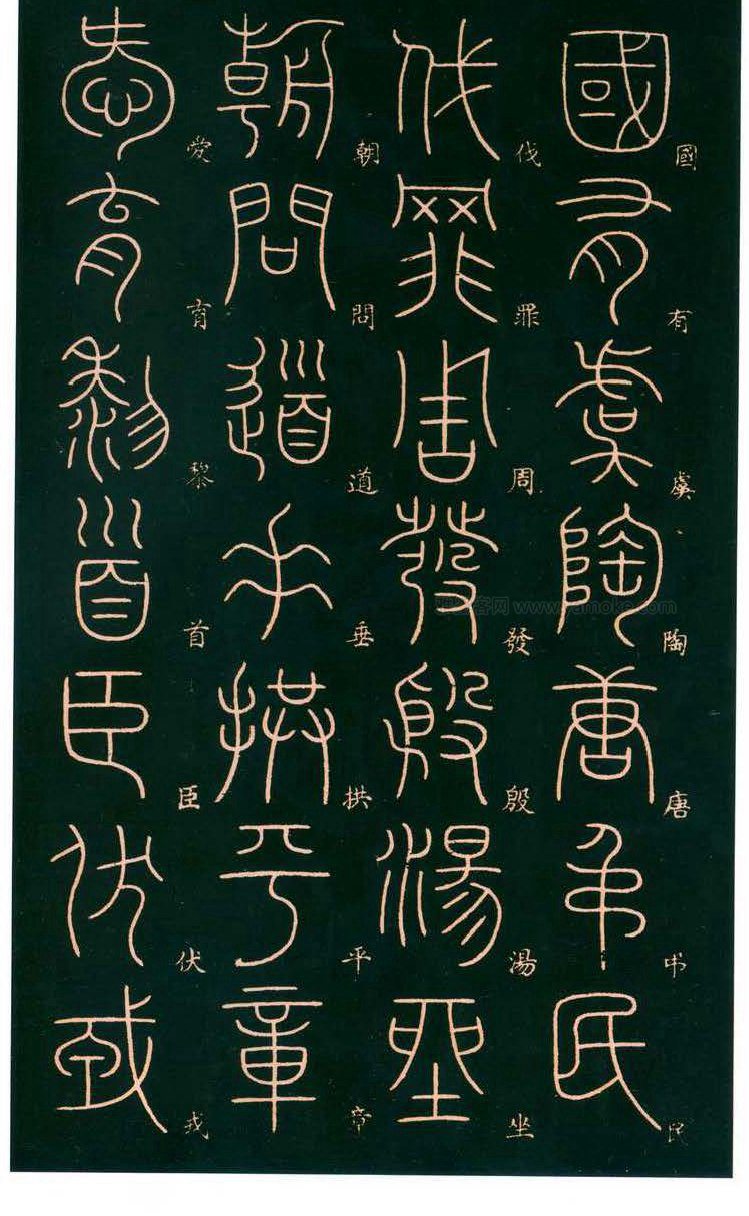 國有虞陶唐弔民
國有虞陶唐弔民
伐罪周發殷湯坐
伐罪周發殷湯坐
朝問道垂拱平章
朝問道垂拱平
愛育黎首臣伏戎
愛育黎首臣伏戎